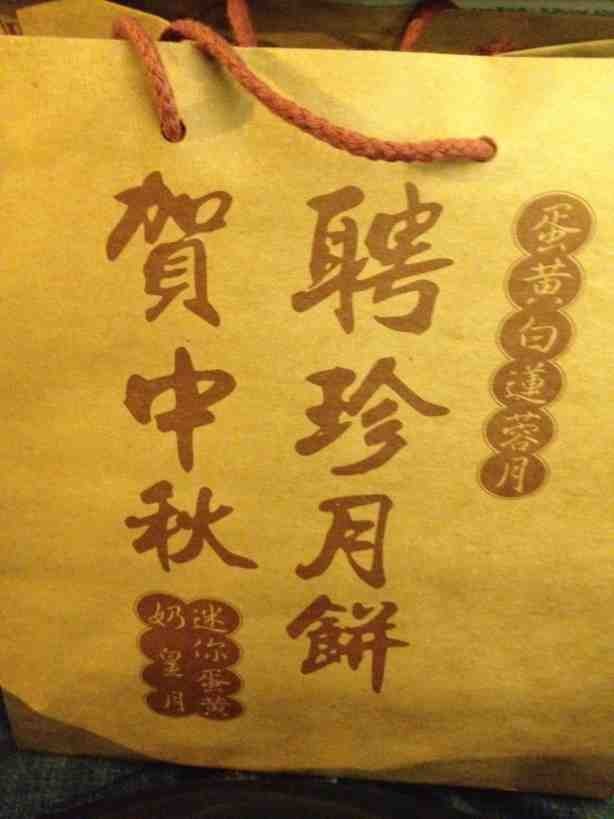 蛋黃白蓮蓉月
聘珍月餅
賀中秋
迷你蛋黃
奶皇月